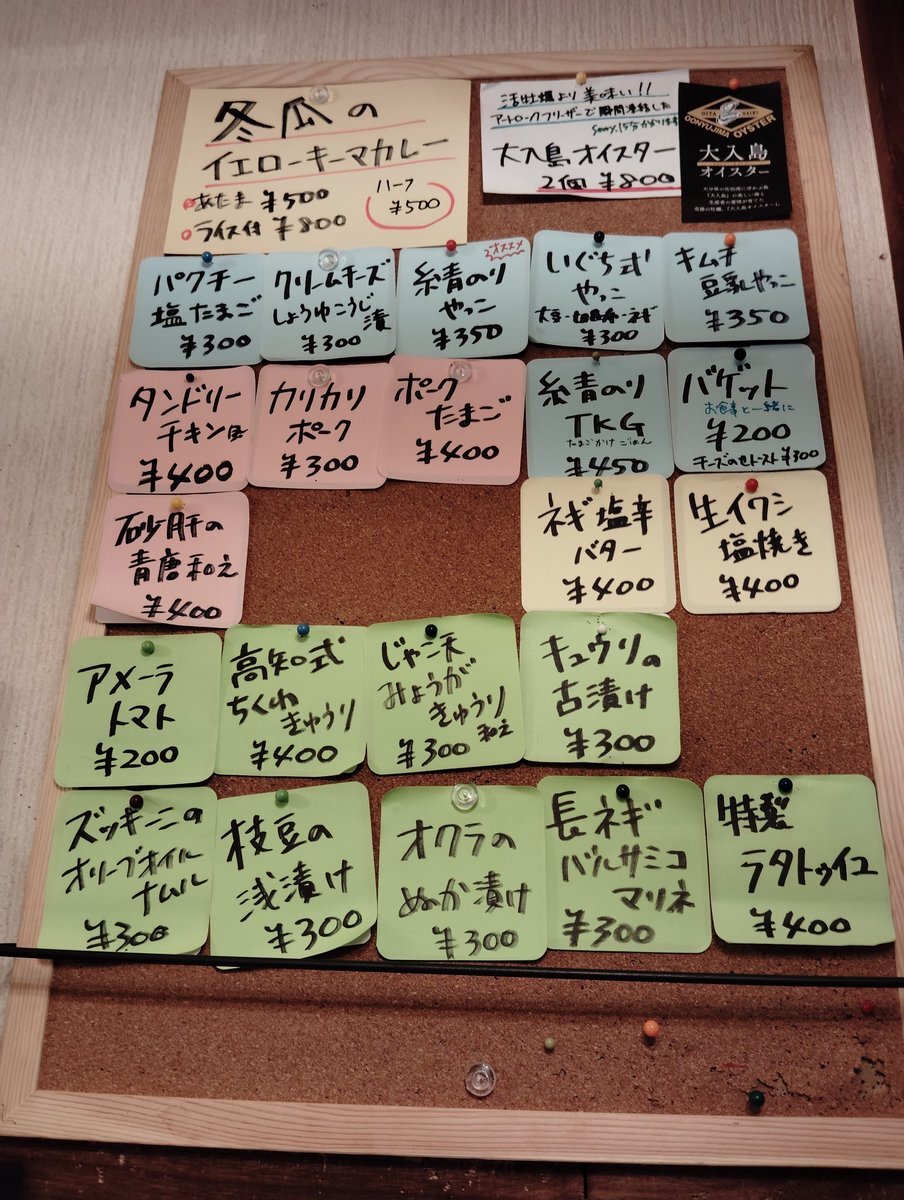 冬瓜の
イエローキーマカレー
あたま ¥500
ライス付 ¥800
ハーフ
¥500
活牡蠣より美味い!!
アートロックフリーザーで瞬間凍結した
sorry,15分かかります
大入島オイスター
2個 ¥800
OITA SAIKI
OONYUJIMA OYSTER
大入島
オイスター
パクチー
塩たまご
¥300
クリームチーズ
しょうゆこうじ
漬
¥300
オススメ
糸青のり
やっこ
¥350
いぐち式
やっこ
ネギ
¥300
キムチ
豆乳やっこ
¥350
タンドリー
チキン
¥400
カリカリ
ポーク
¥300
ポーク
たまご
¥400
糸青のり
TKG
たまごかけごはん
¥450
バゲット
お食事と一緒に
¥200
チーズのせトースト ¥300
砂肝の
青唐和え
¥400
ネギ塩辛
バター
¥400
生イワシ
塩焼き
¥400
アメーラ
トマト
¥200
高知式
ちくわ
きゅうり
¥400
じゃこ天
みょうが
きゅうり
和え
¥300
キュウリの
古漬け
¥300
ズッキーニの
オリーブオイル
ナムル
¥300
枝豆の
浅漬け
¥300
オクラの
ぬか漬け
¥300
長ネギ
バルサミコ
マリネ
¥300
特製
ラタトゥイユ
¥400